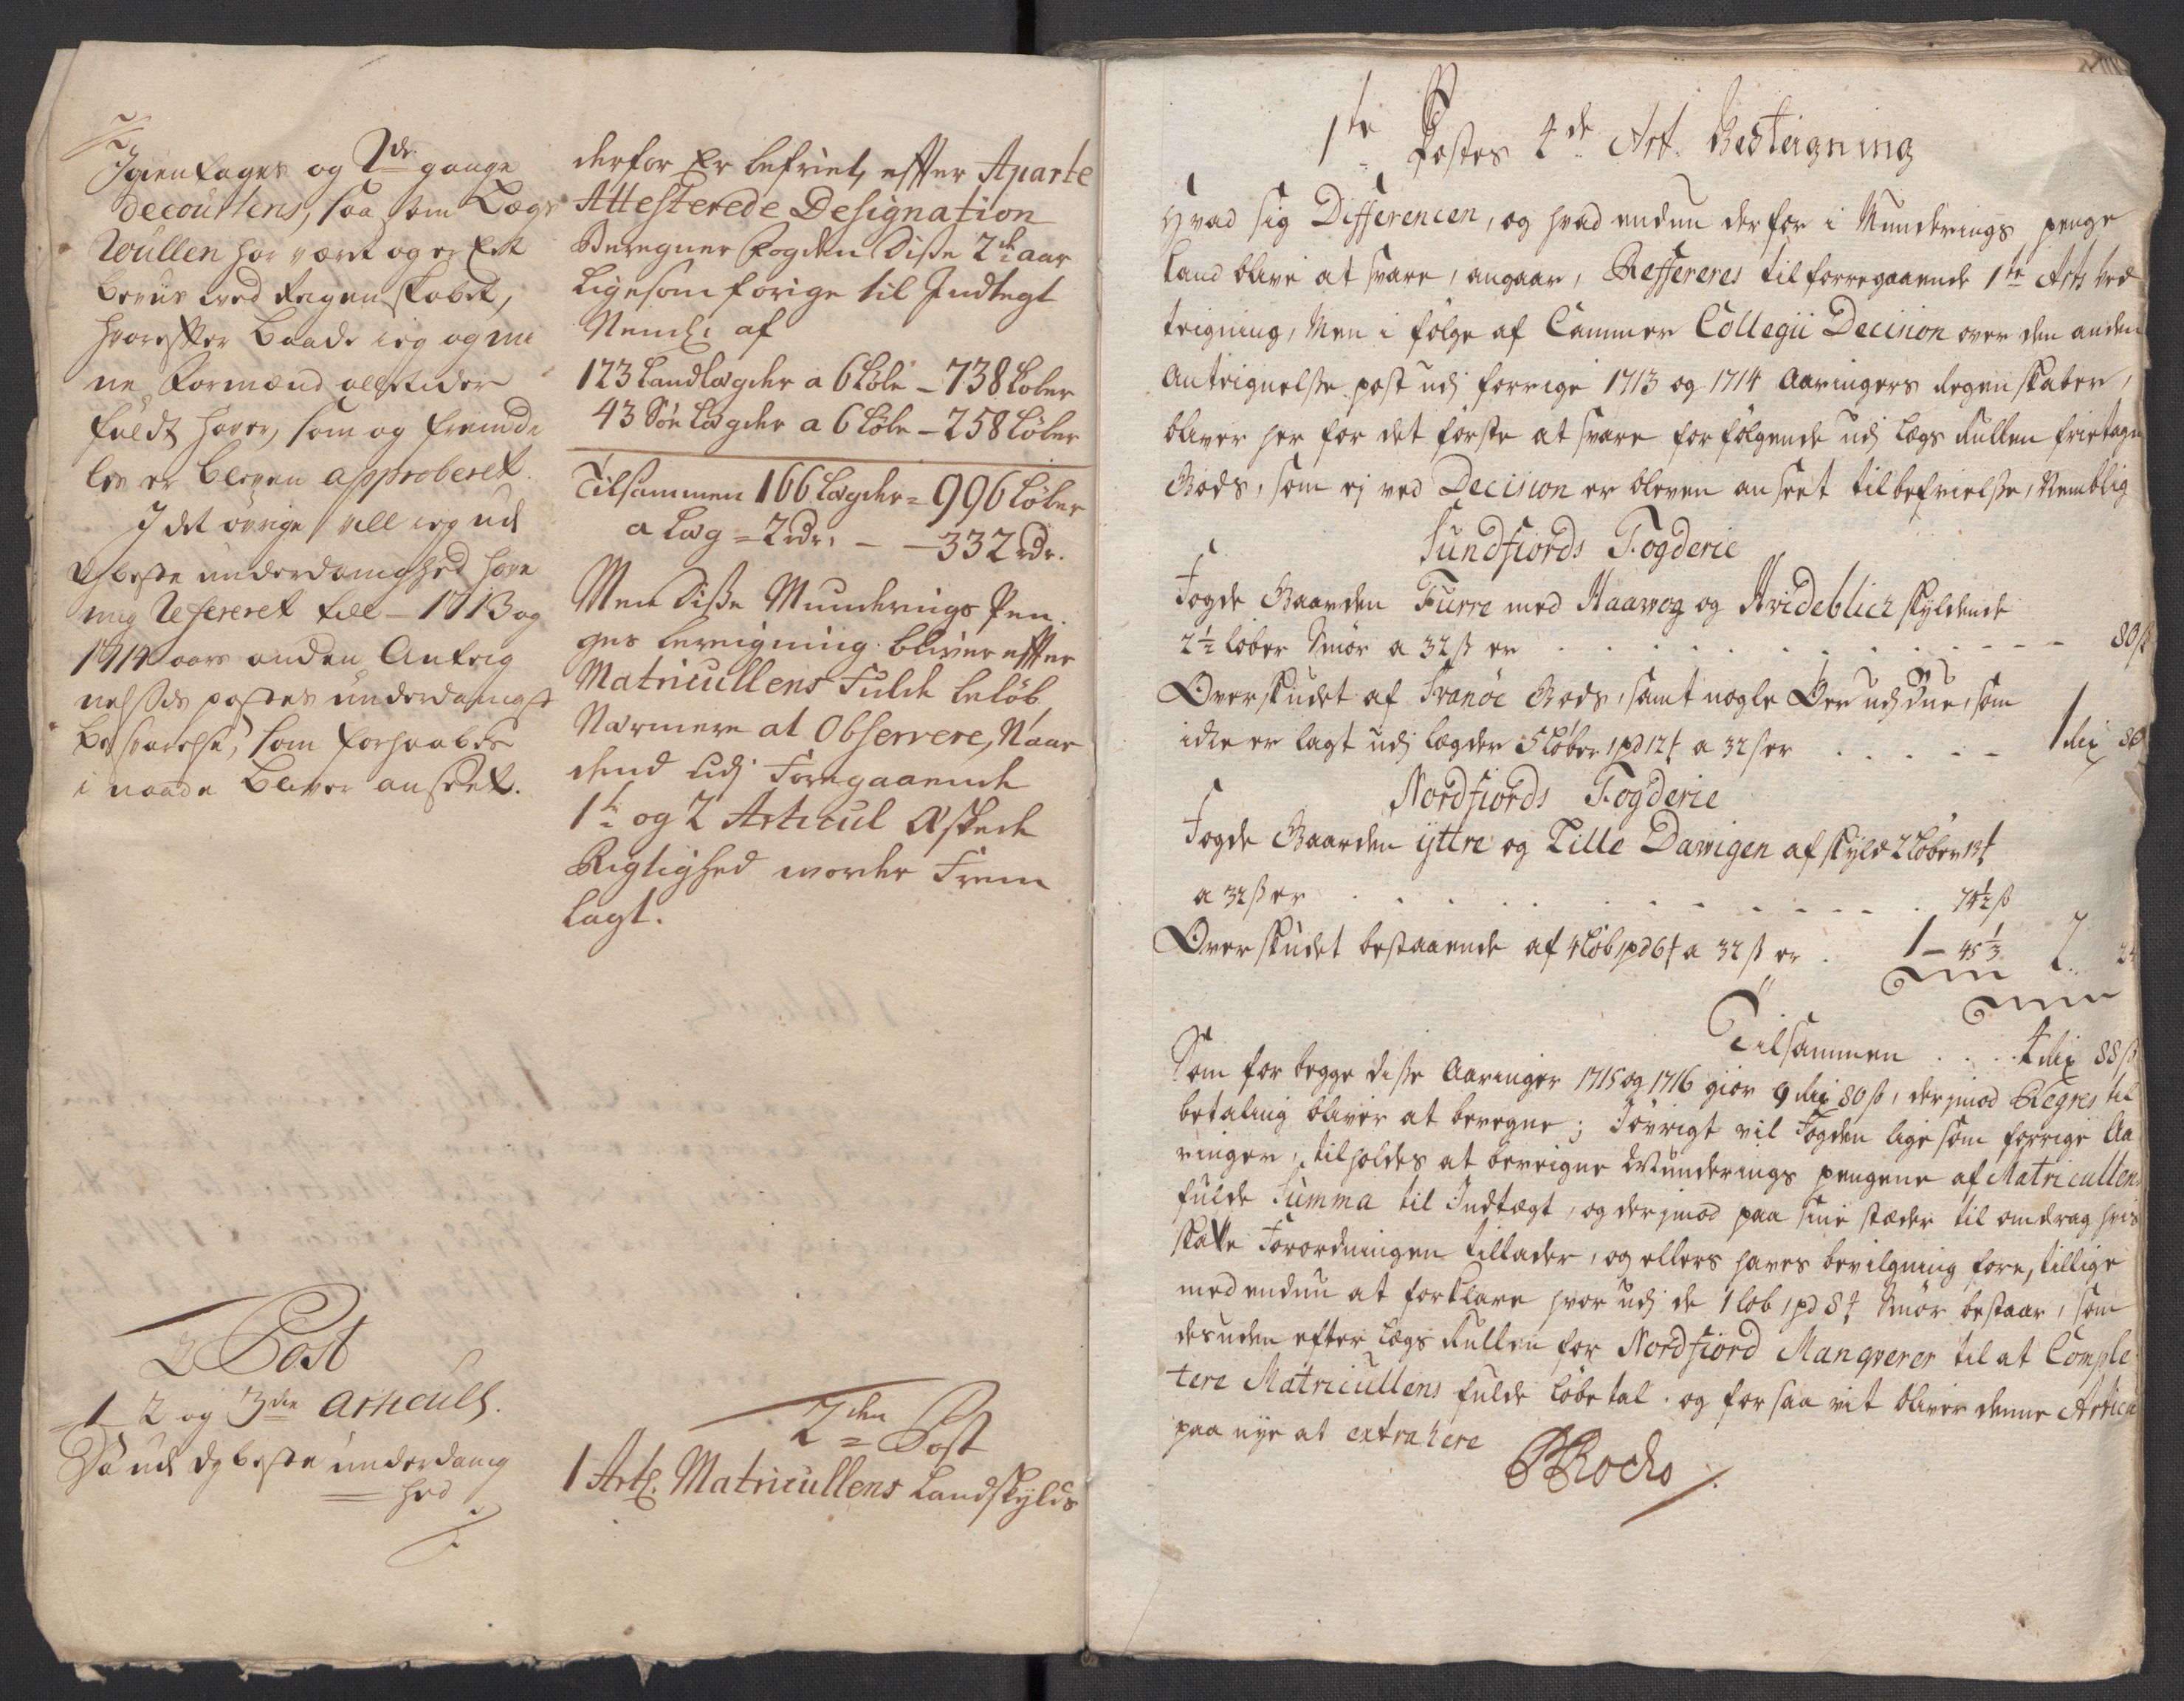 Igientages og 2de gange
decourtens, saa som Lægs
Rullen har været og er Et
beviis ved Regenskabet,
hvorefter baade ieg og mi
ne Formænd alletider
fuldt haver, som og fremde
les er bleven approberet.
I det øvrige vill ieg ud
dybeste underdanighed have
mig Refereret till 1713 og
1714 aars anden Anteig
nelses postes underdanigst
besvarelse, som forhaabes
i naade bliver anseet.
2 Post
1 2 og 3die Articuls.
Saa udi dybeste underdanig
hed
derfor Er befriet, effter Aparte
Attesterede Designation
Beregner Fogden Disse 2de aar
Ligesom forige til Indtegt
Neml: af
123 Landlægder a 6 Løbr – 738 Løber
43 Søe Lægder a 6 Løbr – 258 Løber
Tilsammen 166 Lægder = 996 Løber
a Læg = 2 rdr. – – 332 rdr.
Men Disse Munderings Pen
ges bereigning bliver effter
Matricullens Fulde beløb
Nærmere at Observere, Naar
dend udj Foregaaende
1te og 2 Articul Æskede
Rigtighed worder Frem
lagt.
2den Post
1 Artl. Matricullens Landskylds
1te Postes 4de Art. Besteigning
Hvad sig Differencen, og hvad endnu derfor i Munderings penge
kand blive at svare, angaar, Reffereres til forregaaende 1te Arts bes
teigning, Men i følge af Cammer Collegii Decision over den anden
Anteignelsse post udj forrige 1713 og 1714 Aaringers Regenskaber,
bliver her for det første at svare for følgende udj Lægs Rullen frietagne
Gods, som ej ved Decision er bleven anseet til befrielsse, Nemblig
Sundfiords Fogderie
Fogde Gaarden Furre med Haavog og Hvideblich skyldende
2½ løber Smør a 32 ß er . . . . . . . . – – – 80 ß
Overskudet af Svanøe Gods, samt nogle Øer udj Bue, som
icke er lagt udj Lægder 5 Løber 1 pd 12 a 32 ß er . . . – – 1 dlr 80
Nordfiords Fogderie
Fogde Gaarden yttre og Lille Davigen af skyld 2 Løber 1
a 32 ß er . . . . . . . . – – – 74½ ß
Overskudet bestaaende af 4 Løb 1 pd 6 a 32 ß er . 1 – 45⅓ 2 . . 24
Tilsammen . . . 4 dlr 88 ß
Som for begge disse Aaringer 1715 og 1716 giør 9 dlr 80 ß, derjmod Regres til
betaling bliver at beregne; Iøvrigt vil Fogden lige som forrige Aa
ringer, tilholdes at bereigne Munderings pengene af Matricullens
fulde Summa til Indtægt, og derjmod paa sine stæder til omdrag hvis
skatte Forordningen tillader, og ellers haves bevilgning fore, tillige
med endnu at forklare hvor udj de 1 løb 1 pd 8 Smør bestaar, som
desuden efter Lægs Rullen for Nordfiord Manqverer til at Comple
tere Matricullens fulde løbe tal. og for saa vit bliver denne Articul
paa nye at extrahere